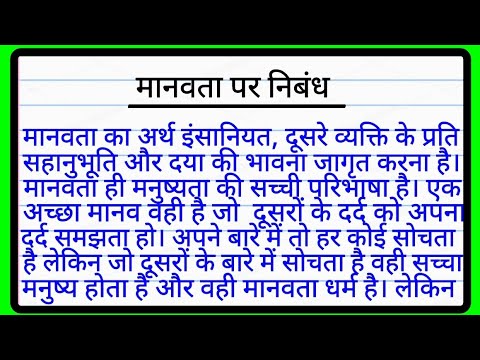 मानवता पर निबंध
मानवता का अर्थ इंसानियत, दूसरे व्यक्ति के प्रति
सहानुभूति और दया की भावना जागृत करना है।
मानवता ही मनुष्यता की सच्ची परिभाषा है। एक
अच्छा मानव वही है जो दूसरों के दर्द को अपना
दर्द समझता हो। अपने बारे में तो हर कोई सोचता
है लेकिन जो दूसरों के बारे में सोचता है वही सच्चा
मनुष्य होता है और वही मानवता धर्म है। लेकिन